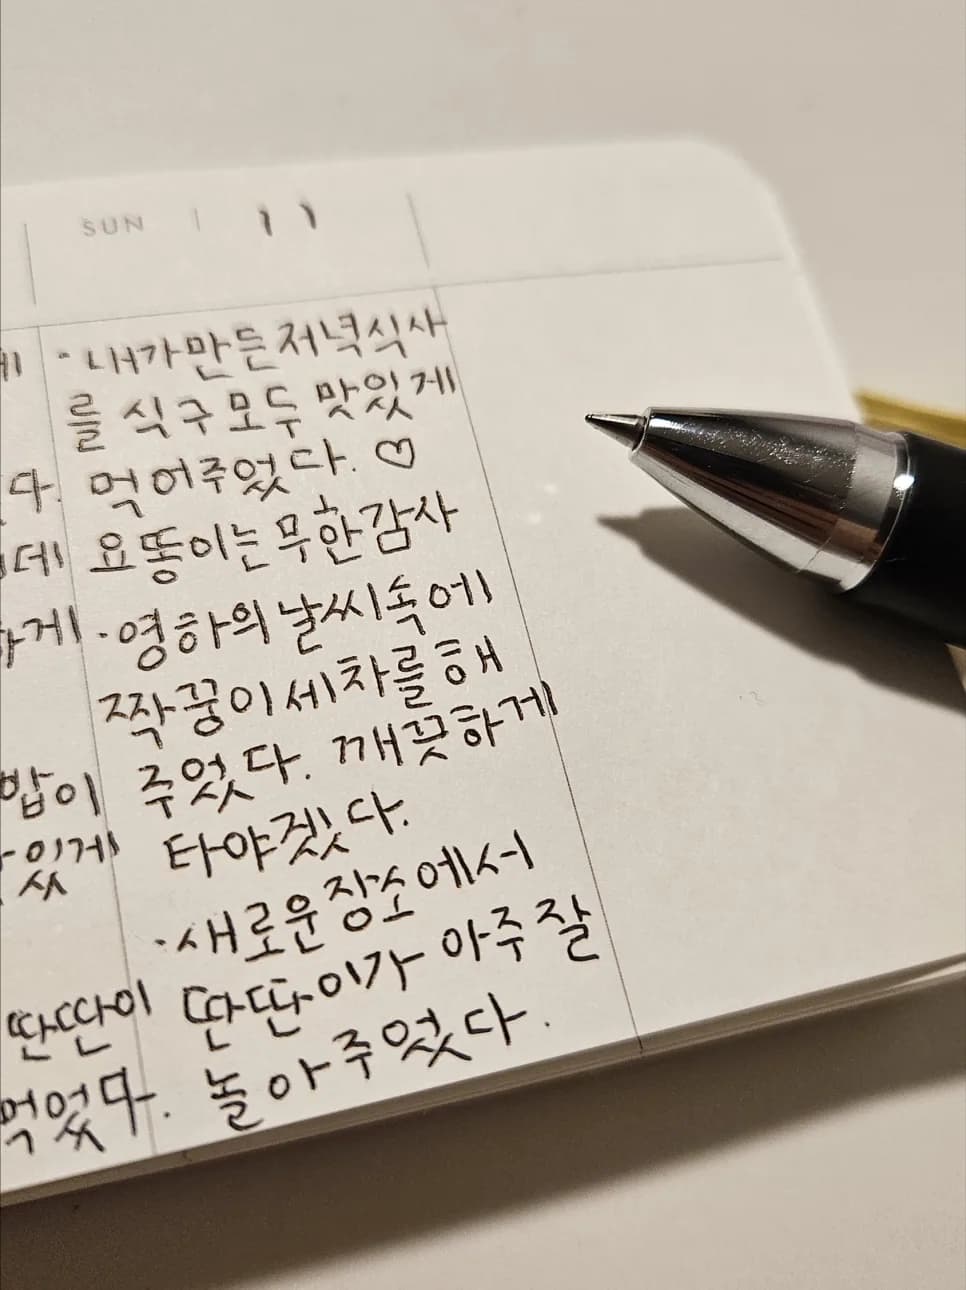 SUN | 11
· 내가만든저녁식사
를 식구모두 맛있게
먹어주었다. ♡
요똥이는 무한감사
· 영하의 날씨속에
짝꿍이세차를해
주었다. 깨끗하게
타야겠다.
· 새로운장소에서
딴딴이가 아주잘
놀아주었다.
다.
데
하게
밥이
있게
딴딴이
먹었다.